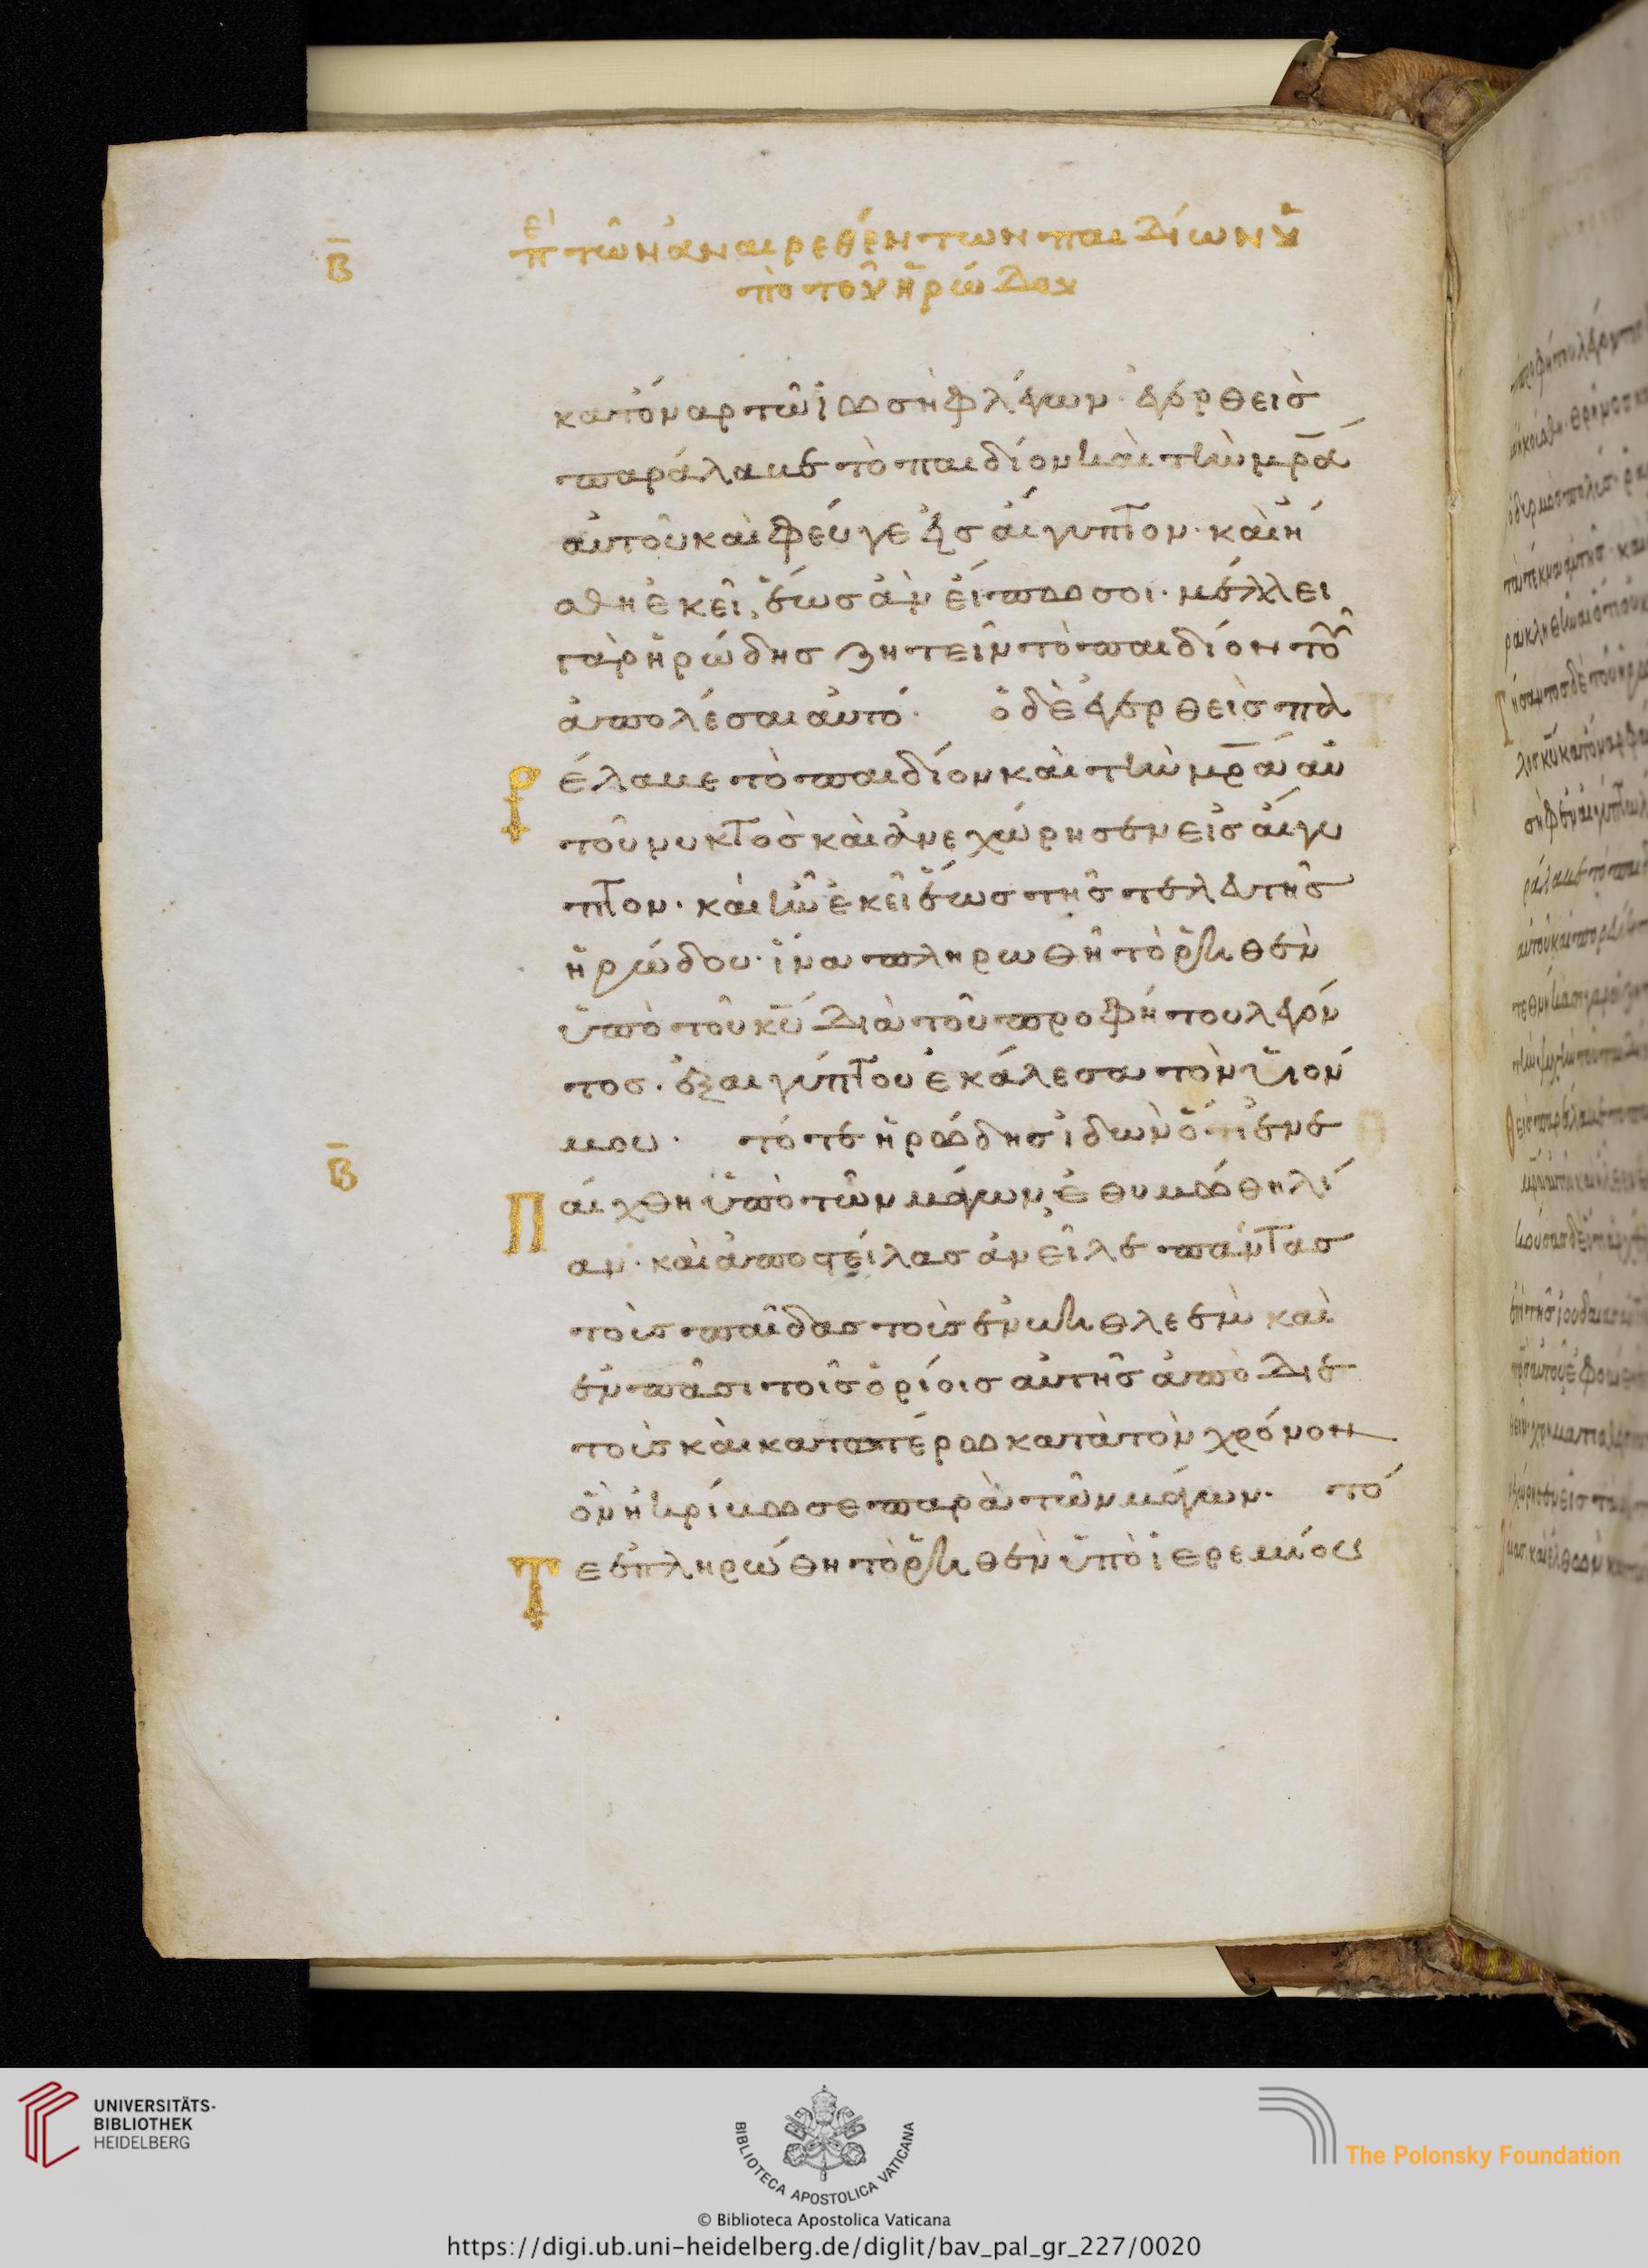 Β
πε τῶν ἀναιρεθέντων παιδίων ὑ
πὸ τοῦ ἡρώδου
κατόναρ τῶ ἰωσὴφ λέγων· ἐγερθεὶσ
παράλαβε τὸ παιδίον καὶ τὴν μρ̅α
αὐτοῦ καὶ φεύγε εἰσ αἴγυπτον· καὶ ἴ
σθη ἐκεῖ, ἕωσ ἀν εἴπω σοι· μέλλει
γὰρ ἡρώδησ ζητεῖν τὸ παιδίον τοῦ
ἀπολέσαι αὐτό· ὁ δὲ ἐγερθεὶσ πα
ρέλαβε τὸ παιδίον καὶ τὴν μρ̅α αὐ
τοῦ νυκτὸσ καὶ ἀνεχώρησεν εἰσ αἴγυ
πτον· καὶ ἦν ἐκεῖ ἕωσ τῆσ τελευτῆσ
ἡρώδου· ἵνα πληρωθῆ τὸ ῥηθὲν
ὑπὸ τοῦ κυ̅ διὰ τοῦ προφήτου λέγον
τοσ· ἐξ αιγύπτου ἐκάλεσα τὸν υἱόν
μου· τότε ἡρώδησ ἰδὼν ὅτι ἐνε
Β
παίχθη ὑπὸ τῶν μάγων, ἐθυμώθη λί
αν· καὶ ἀποστείλασ ἀνεῖλε πάντασ
τοὺσ παῖδασ τοὺσ ἐν βηθλεὲμ καὶ
ἐν πᾶσι τοῖσ ὁρίοισ αὐτῆσ ἀπὸ διε
τοὺσ καὶ κατωτέρω κατὰ τὸν χρόνον
ὃν ἠκρίβωσε παρὰ τῶν μάγων· τό
τε ἐπληρώθη τὸ ῥηθὲν ὑπὸ ἱερεμίου
UNIVERSITÄTS-
BIBLIOTHEK
HEIDELBERG
BIBLIOTECA APOSTOLICA VATICANA
The Polonsky Foundation
© Biblioteca Apostolica Vaticana
https://digi.ub.uni-heidelberg.de/diglit/bav_pal_gr_227/0020